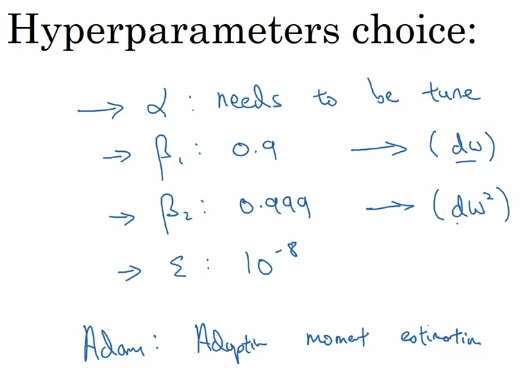 Hyperparameters choice:
→ α : needs to be tune
→ β₁ : 0.9 → (dw)
→ β₂ : 0.999 → (dw²)
→ ε : 10⁻⁸
Adam : Adaptin moment estimation